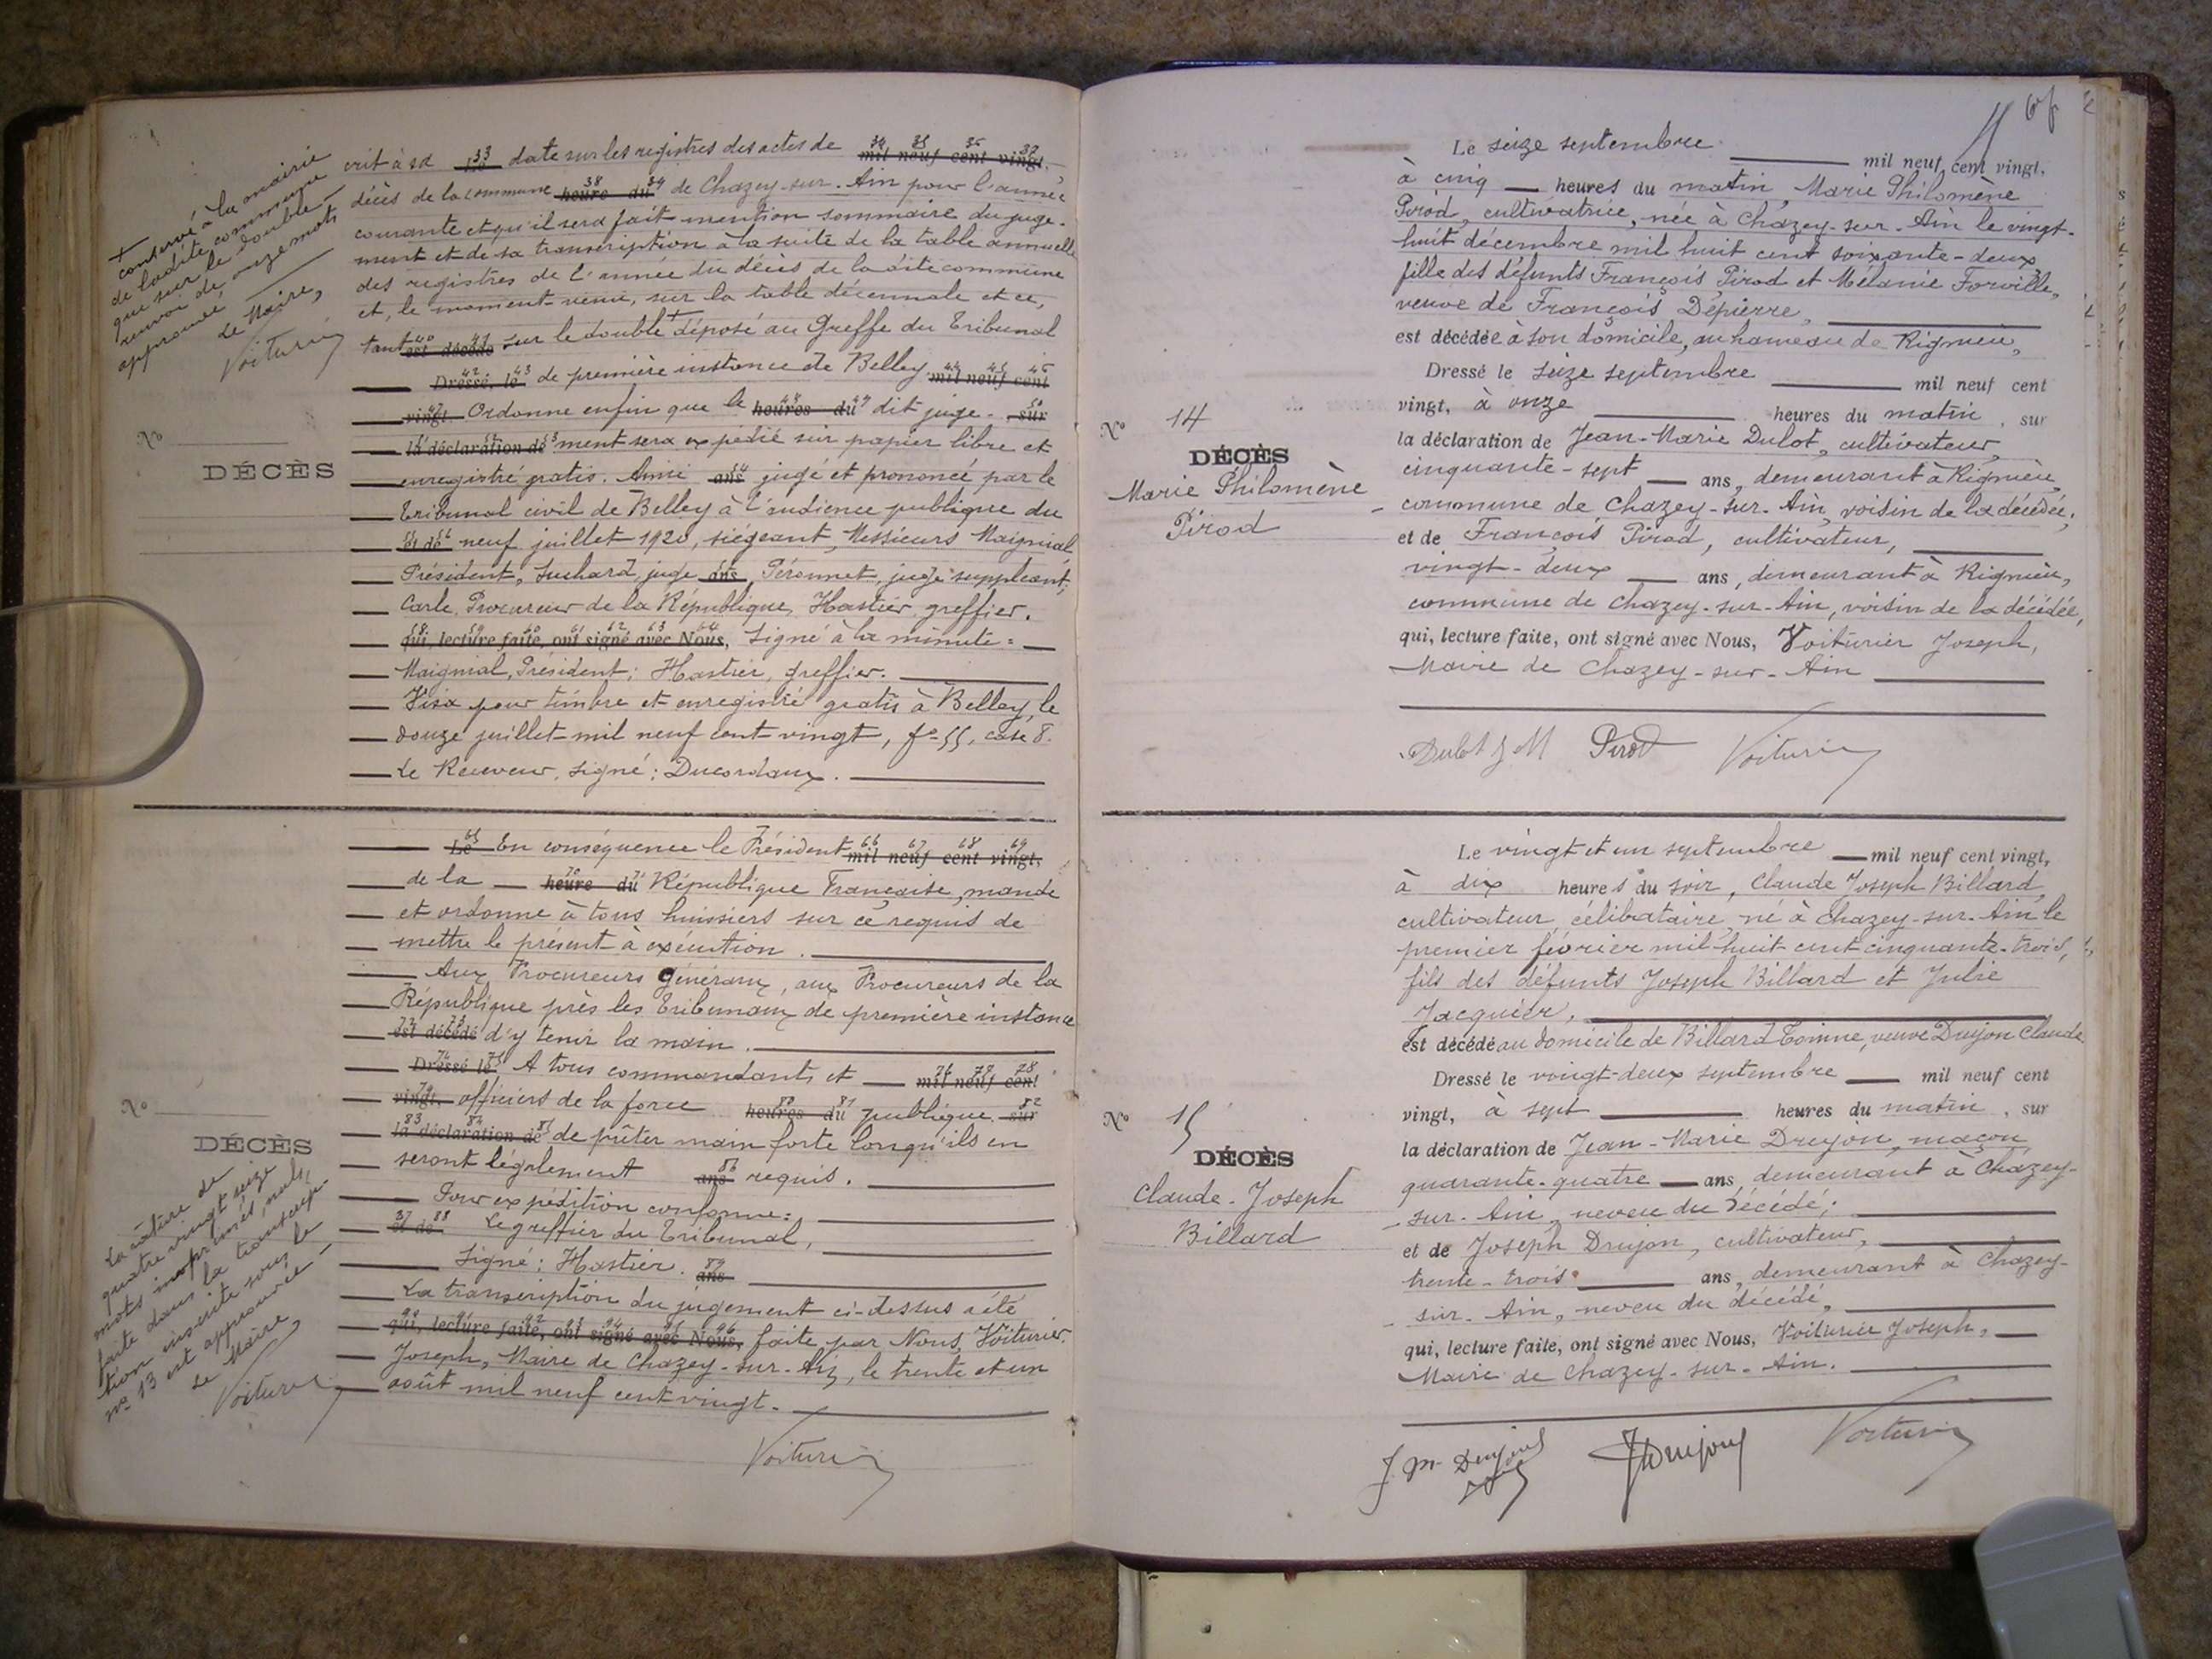 +
conservé à la mairie
de ladite commune
que sur le double
renvoi de onze mots
approuvé
Le Maire,
Voiturier
crit à sa Le 33 date sur les registres des actes de mil neuf cent vingt, 34 35 36 37
décès de la commune heure du 38 39 de Chazey-sur-Ain pour l'année
courante et qu'il sera fait mention sommaire du juge-
ment et de sa transcription à la suite de la table annuelle
des registres de l'année du décès de la dite commune
et, le moment venu, sur la table décennale et ce,
tant est décédé 40 41 sur le double + déposé au Greffe du Tribunal
Dressé, le 42 43 de première instance de Belley mil neuf cent 44 45 46
vingt 47 Ordonne enfin que le heures du 48 49 dit juge- sur 50
la déclaration de 51 52 53 ment sera expédié sur papier libre et
enregistré gratis. Ainsi ans 54 jugé et prononcé par le
Tribunal civil de Belley à l'audience publique du
et de 55 56 neuf juillet 1920, siégeant, Messieurs Maignial
Président, Suchard, juge ans, Péronnet, juge suppléant;
Carle, Procureur de la République, Hastier, greffier.
qui, lecture faite, ont signé avec Nous, 58 59 60 61 62 63 64 Signé à la minute:
Maignial, Président; Hastier, greffier.
Visa pour timbre et enregistré gratis à Belley, le
douze juillet mil neuf cent vingt, fo 55, case 8.
Le Receveur, signé:
No
DÉCÈS
Le 65 En conséquence le Président mil neuf cent vingt, 66 67 68 69
de la heure du 70 71 République Française, mande
et ordonne à tous huissiers sur ce requis de
mettre le présent à exécution.
Aux Procureurs Généraux, aux Procureurs de la
République près les Tribunaux de première instance
est décédé 72 73 d'y tenir la main.
Dressé le 74 75 A tous commandants et mil neuf cent 76 77 78
vingt, 79 officiers de la force heures du 80 81 publique sur 82
la déclaration de 83 84 85 de prêter main forte lorsqu'ils en
seront légalement ans 86 requis.
Pour expédition conforme:
et de 87 88 Le greffier du Tribunal,
Signé: Hastier. ans 89
La transcription du jugement ci-dessus a été
qui, lecture faite, ont signé avec Nous, 90 91 92 93 94 95 96 faite par Nous, Voiturier
Joseph, Maire de Chazey-sur-Ain, le trente et un
août mil neuf cent vingt.
Voiturier
No
DÉCÈS
La rature de
quatre vingt seize
mots imprimés, nuls,
faite dans la transcrip-
tion inscrite sous le
no 13 est approuvée
Le Maire
Voiturier
Le seize septembre mil neuf cent vingt,
à cinq heures du matin, Marie Philomène
Pirod, cultivatrice, née à Chazey-sur-Ain le vingt-
huit décembre mil huit cent soixante-deux
fille des défunts François Pirod et Mélanie Forville,
veuve de François Dépierre,
est décédée à son domicile, au hameau de Rignieu,
Dressé le seize septembre mil neuf cent
vingt, à onze heures du matin, sur
la déclaration de Jean-Marie Dulot, cultivateur,
cinquante-sept ans, demeurant à Rignieu,
commune de Chazey-sur-Ain, voisin de la décédée,
et de François Pirod, cultivateur,
vingt-deux ans, demeurant à Rignieu,
commune de Chazey-sur-Ain, voisin de la décédée,
qui, lecture faite, ont signé avec Nous, Voiturier Joseph,
Maire de Chazey-sur-Ain
Dulot J M Pirod Voiturier
No 14
DÉCÈS
Marie Philomène
Pirod
Le vingt et un septembre mil neuf cent vingt,
à dix heures du soir, Claude Joseph Billard,
cultivateur, célibataire, né à Chazey-sur-Ain le
premier février mil huit cent cinquante-trois,
fils des défunts Joseph Billard et Julie
Jacquier,
est décédé au domicile de Billard, veuve Drujon Claude
Dressé le vingt-deux septembre mil neuf cent
vingt, à sept heures du matin, sur
la déclaration de Jean-Marie Drujon, maçon,
quarante-quatre ans, demeurant à Chazey-
sur-Ain, neveu du décédé;
et de Joseph Drujon, cultivateur,
trente-trois ans, demeurant à Chazey-
sur-Ain, neveu du décédé,
qui, lecture faite, ont signé avec Nous, Voiturier Joseph,
Maire de Chazey-sur-Ain.
J. M. Drujon J Drujon Voiturier
No 15
DÉCÈS
Claude-Joseph
Billard